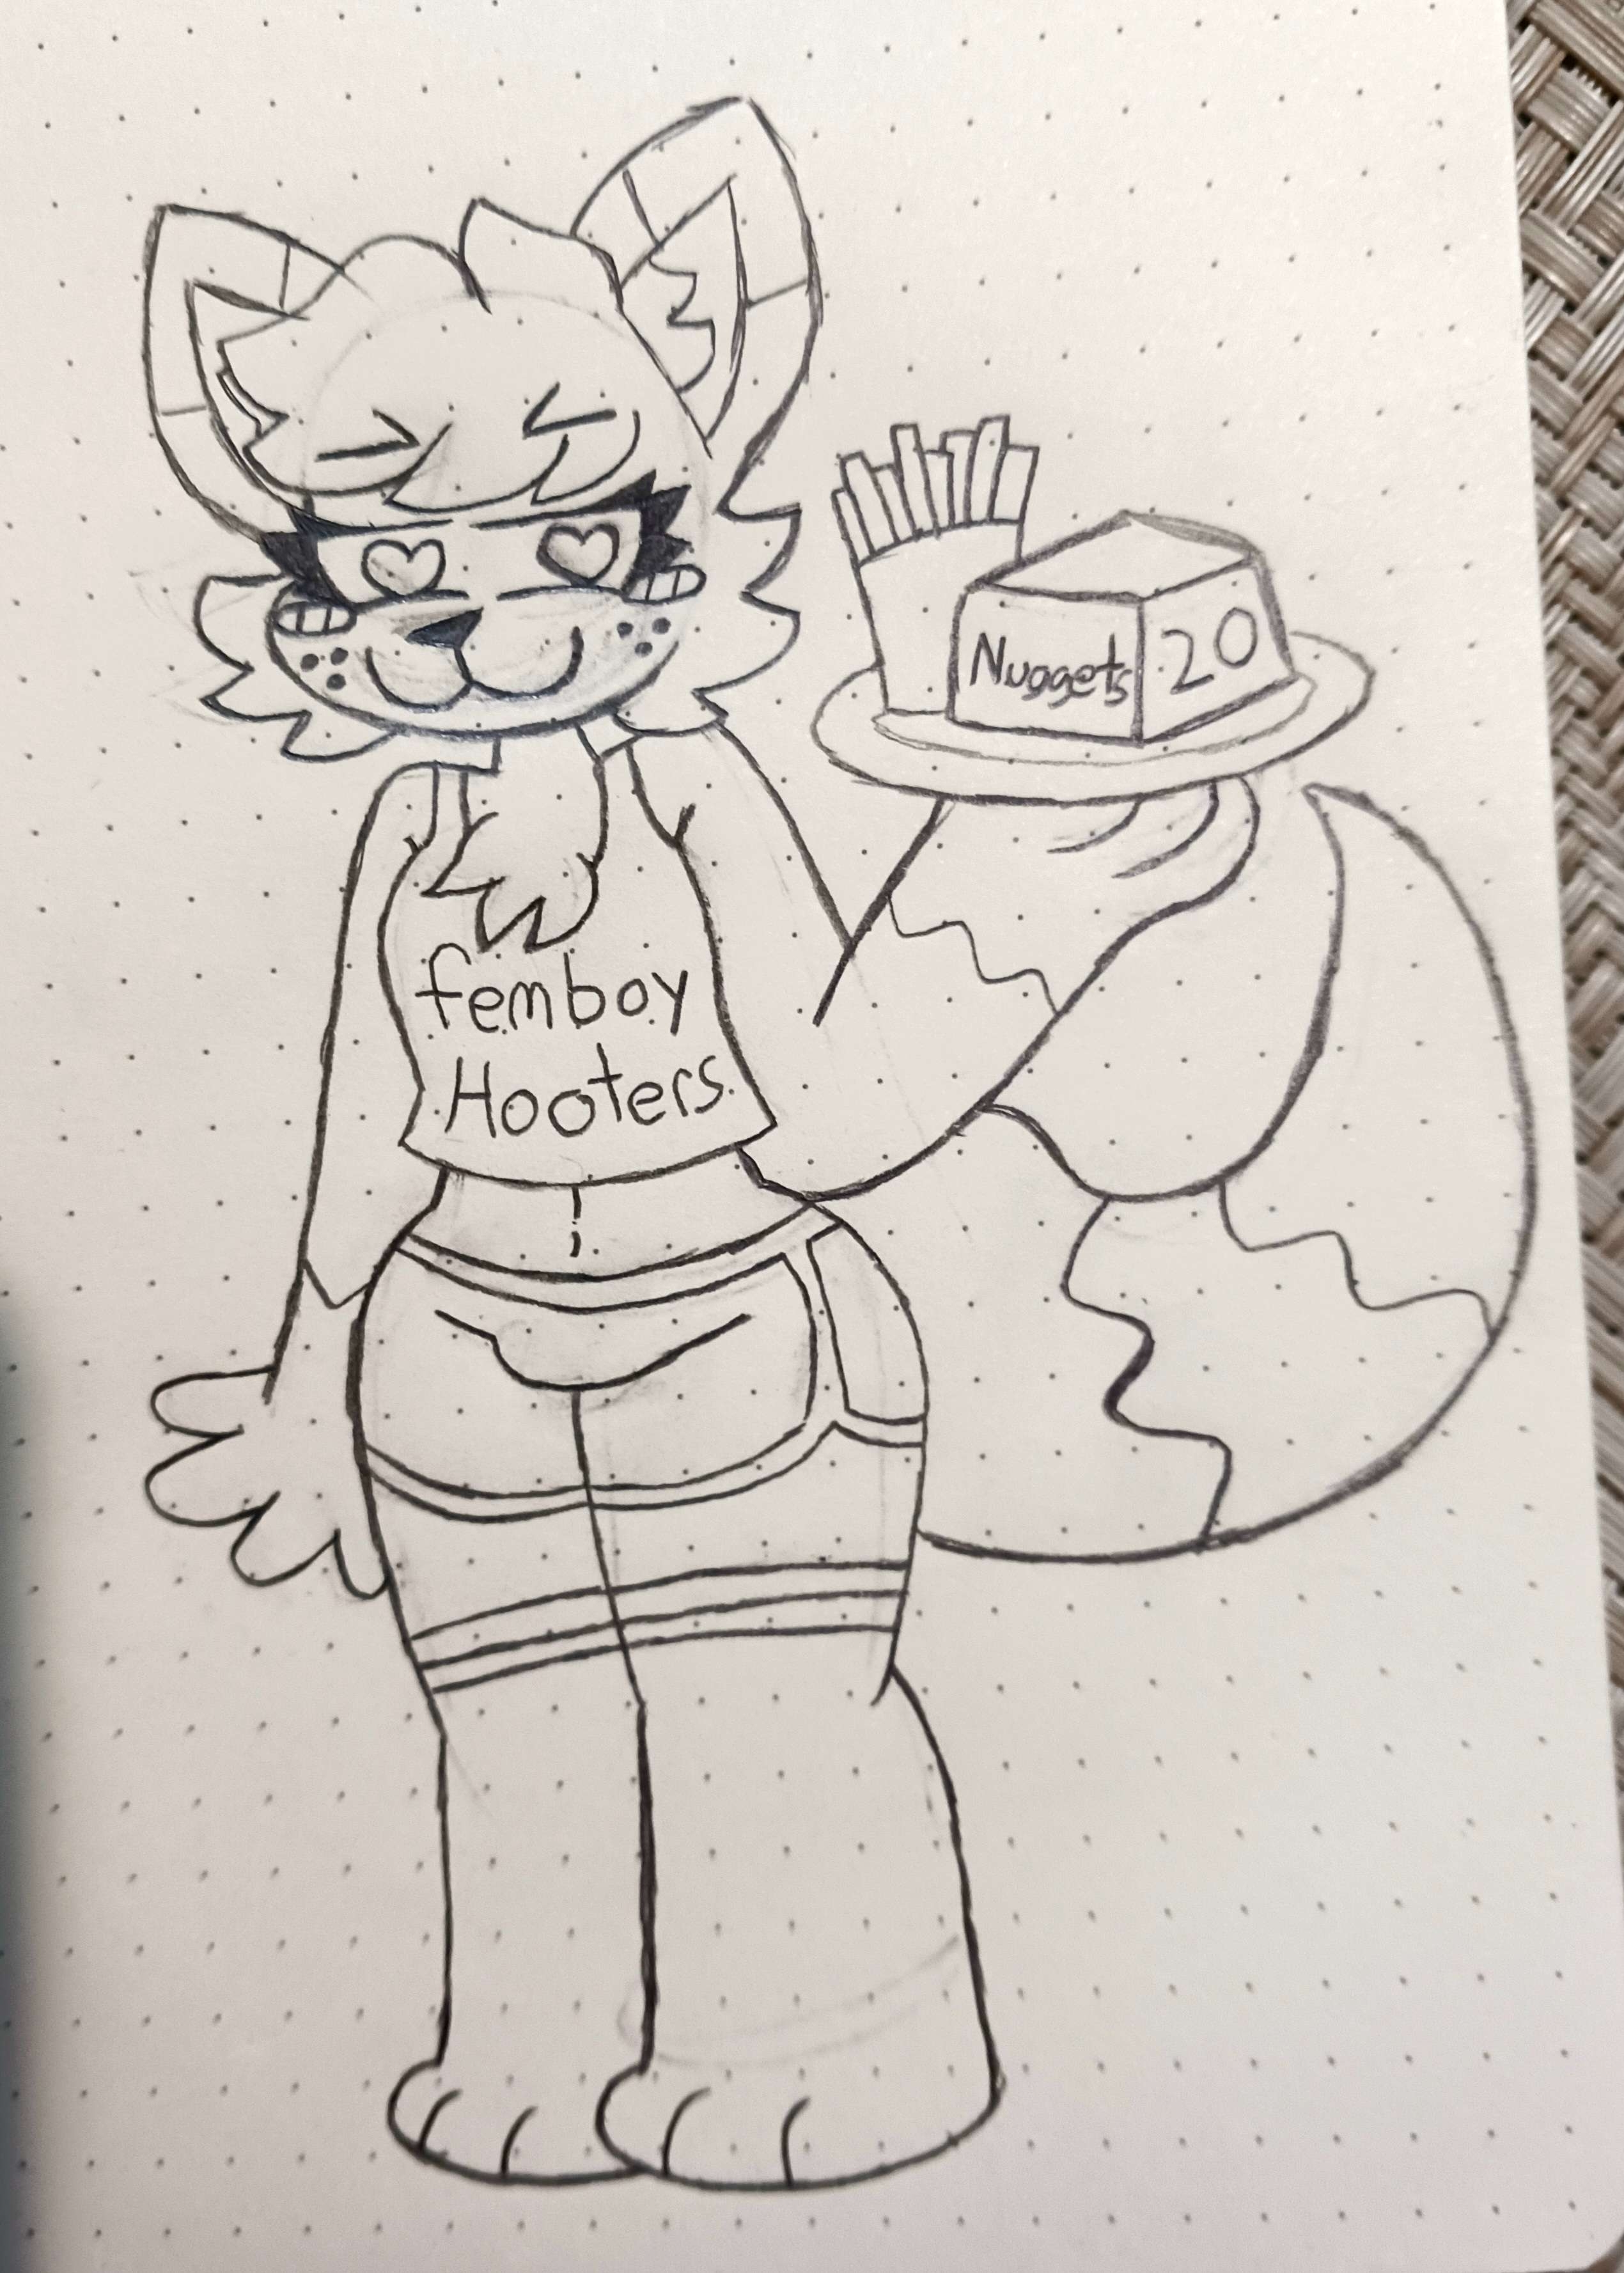 Nuggets 20
femboy
Hooters